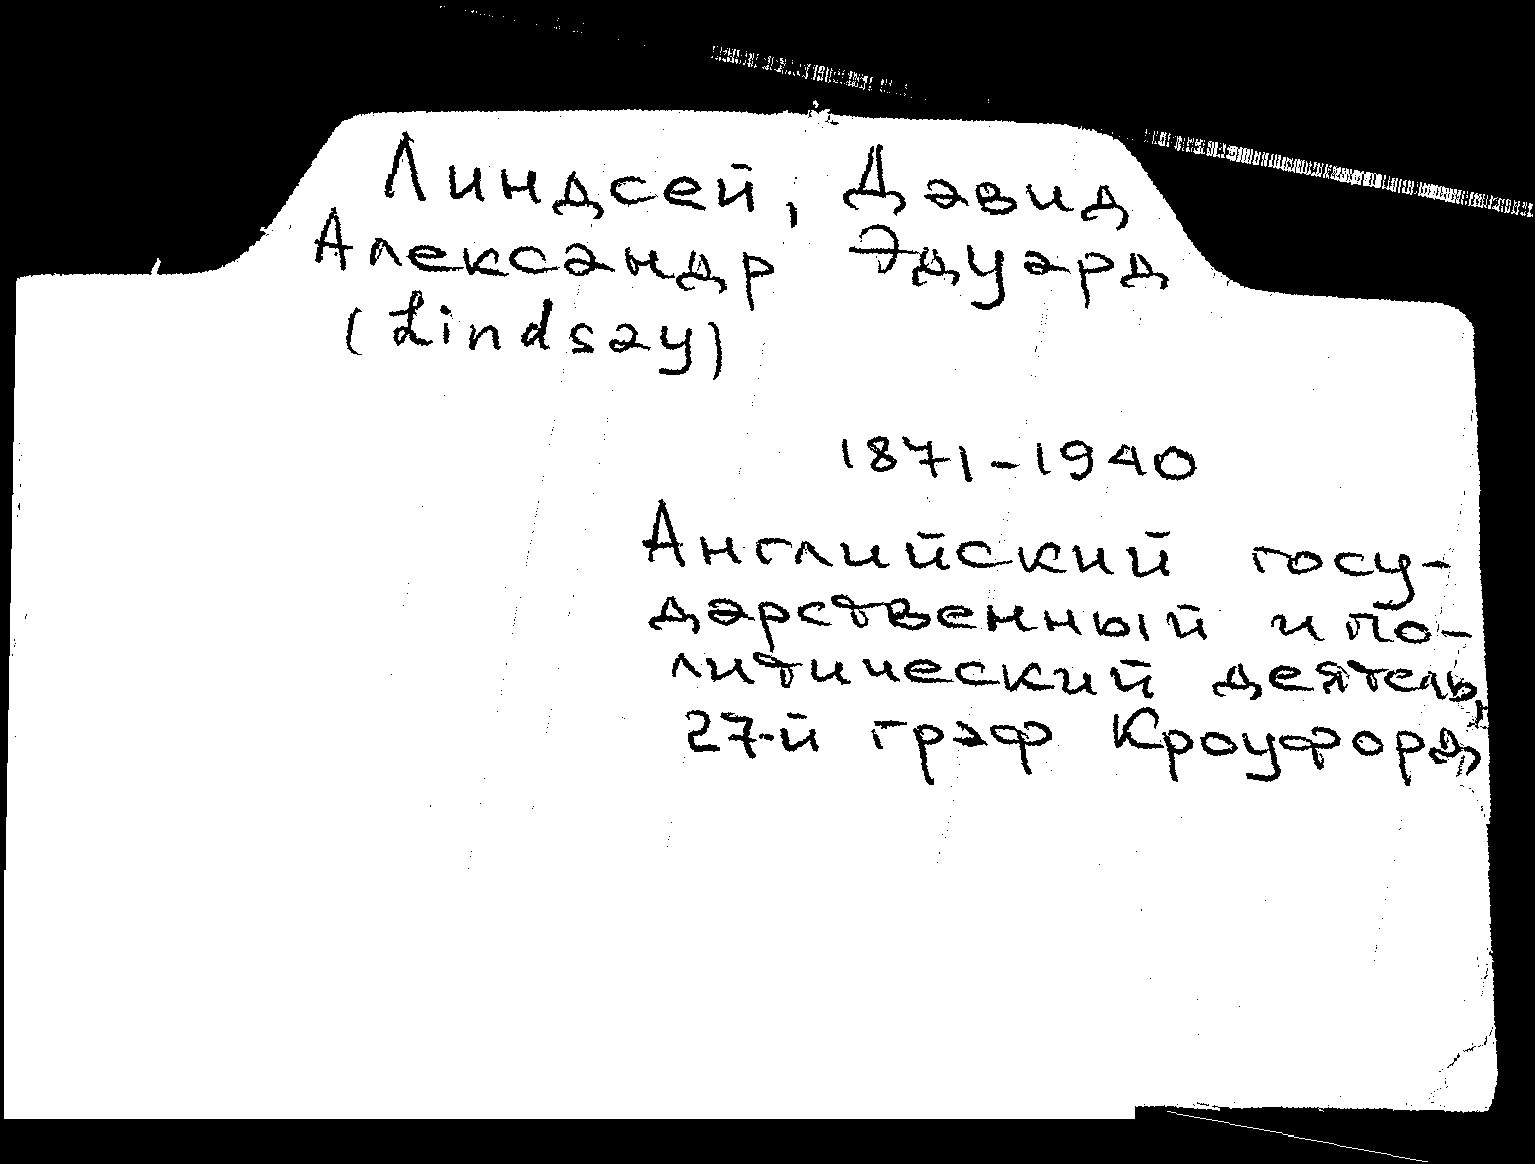 Линдсей, Давид
Александр Эдуард
(Lindsay)
1871-1940
Английский госу-
дарственный и по-
литический деятель,
27-й граф Кроуфорд